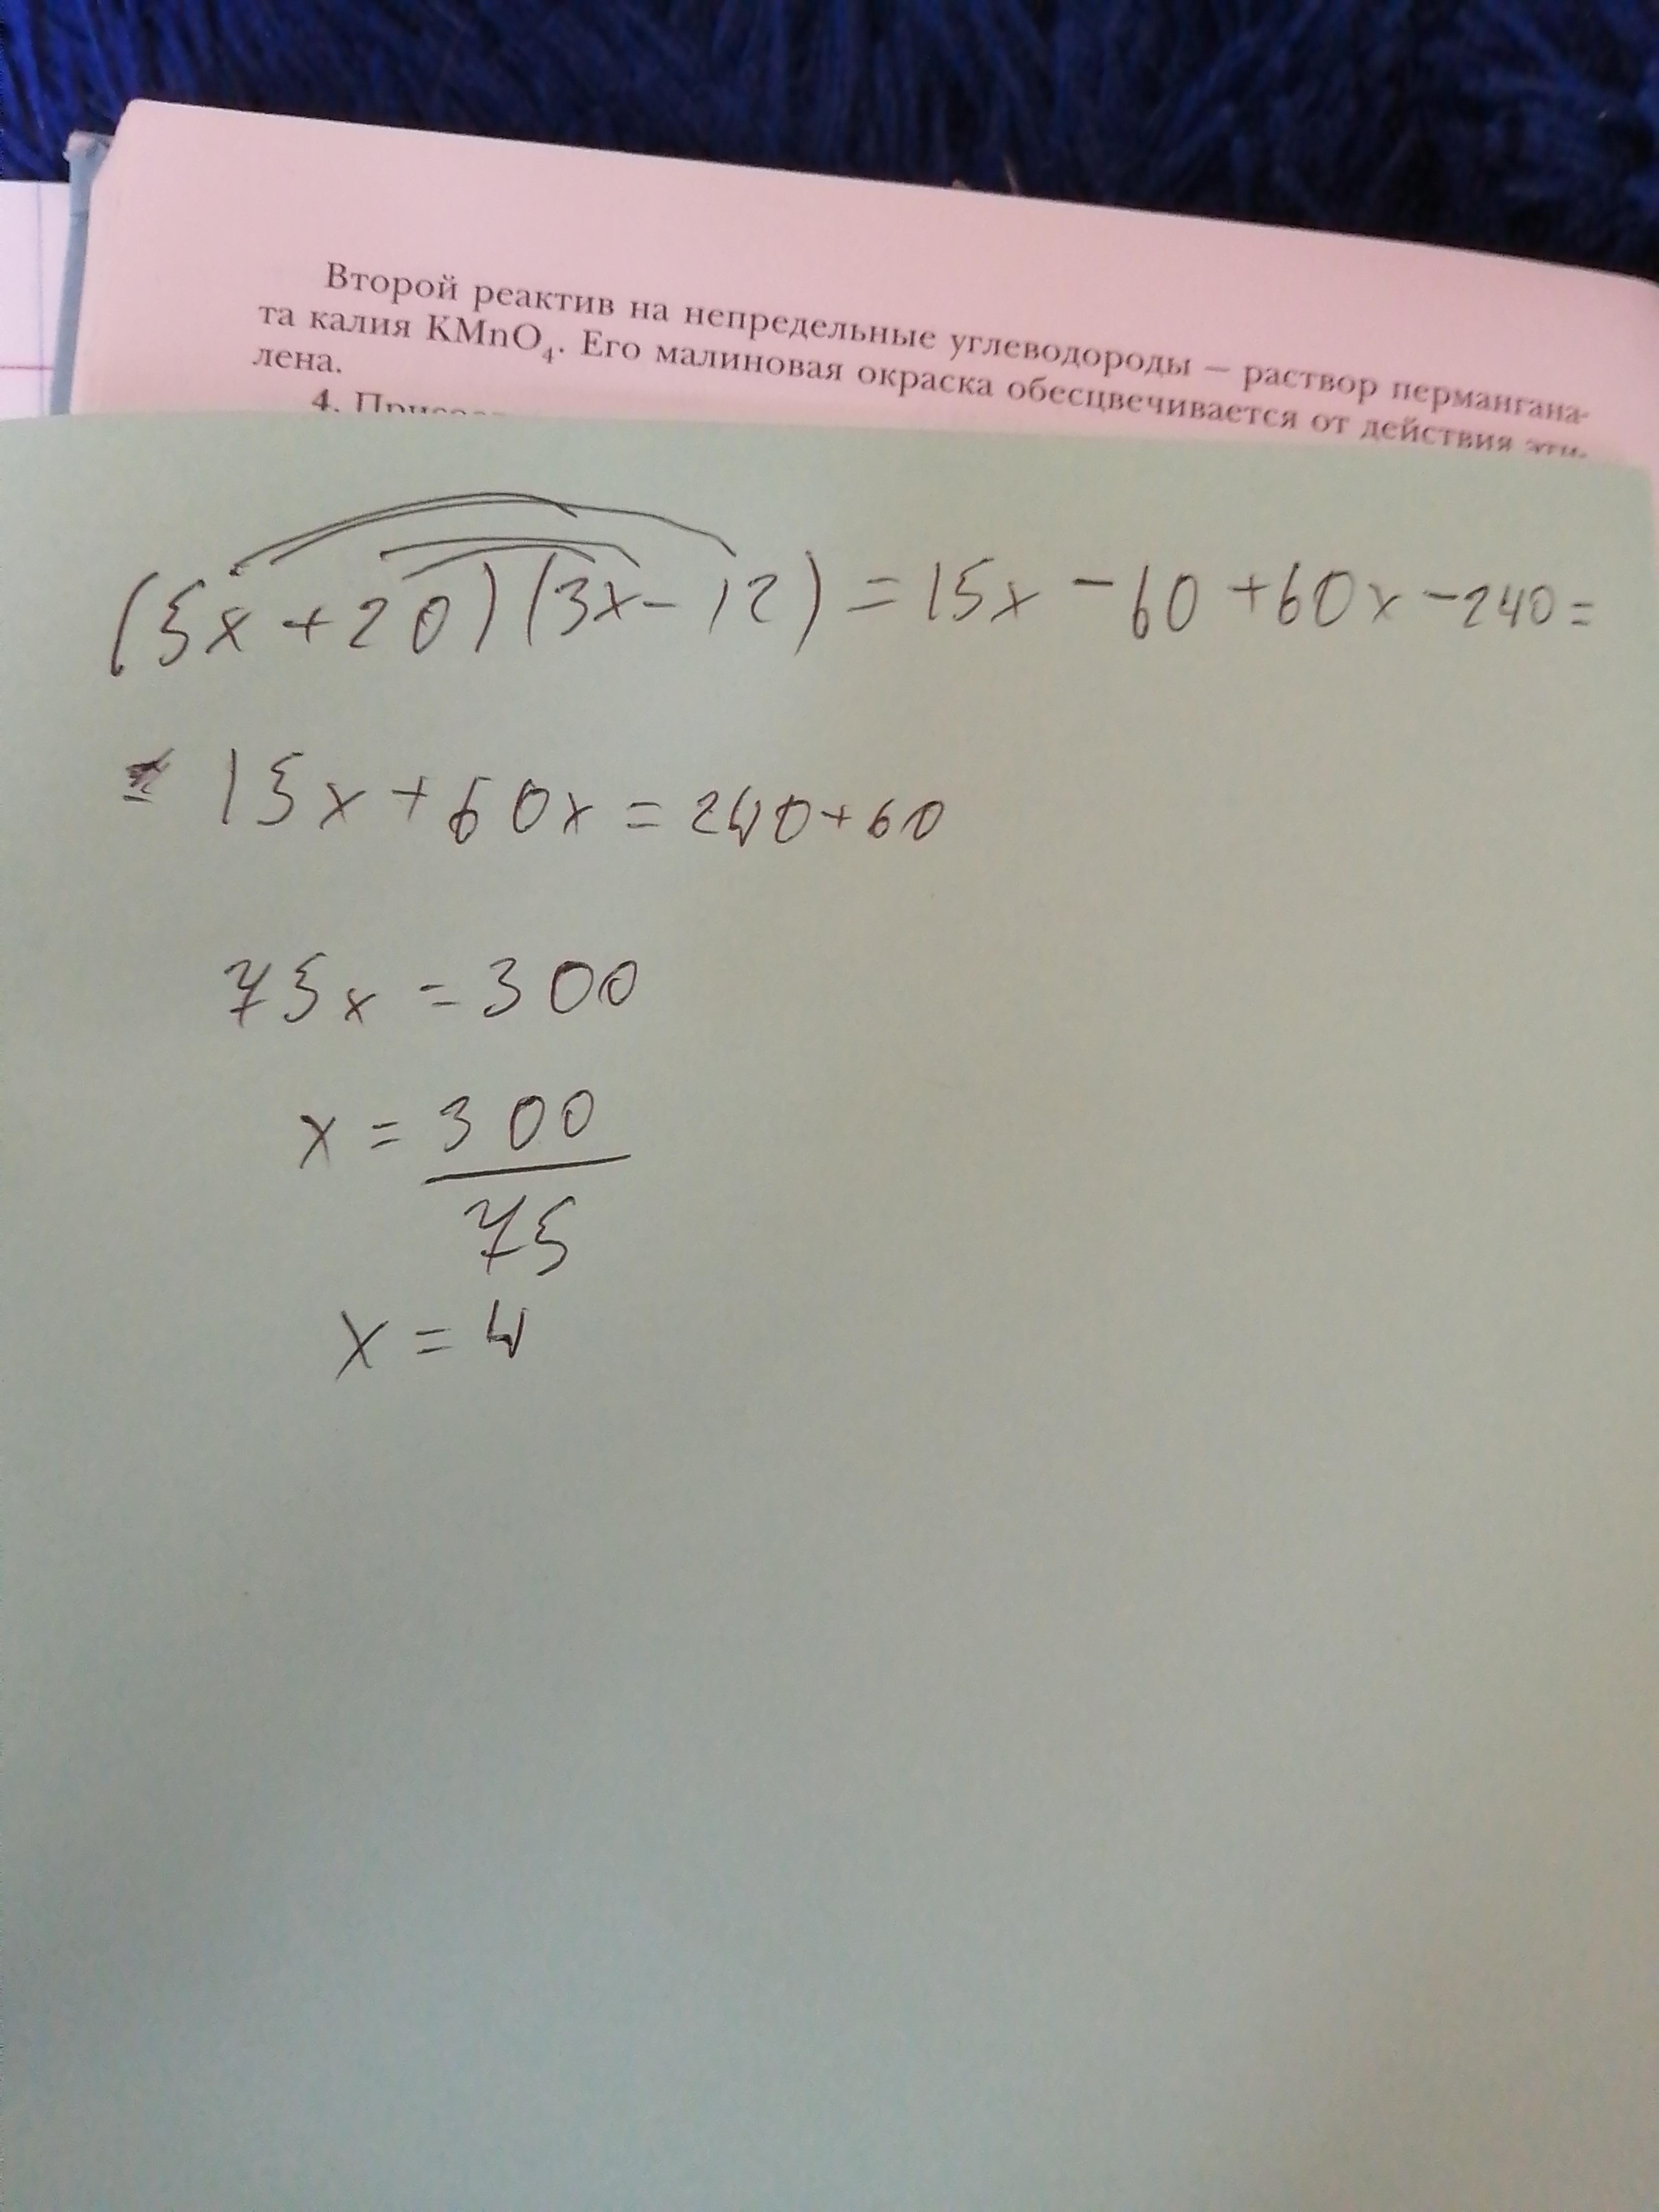 Второй реактив на непредельные углеводороды — раствор пермангана-
та калия KMnO₄. Его малиновая окраска обесцвечивается от действия эти-
лена.
4.
(5x+20)(3x-12)=15x-60+60x-240=
= 15x+60x=240+60
75x=300
x=300
75
x=4